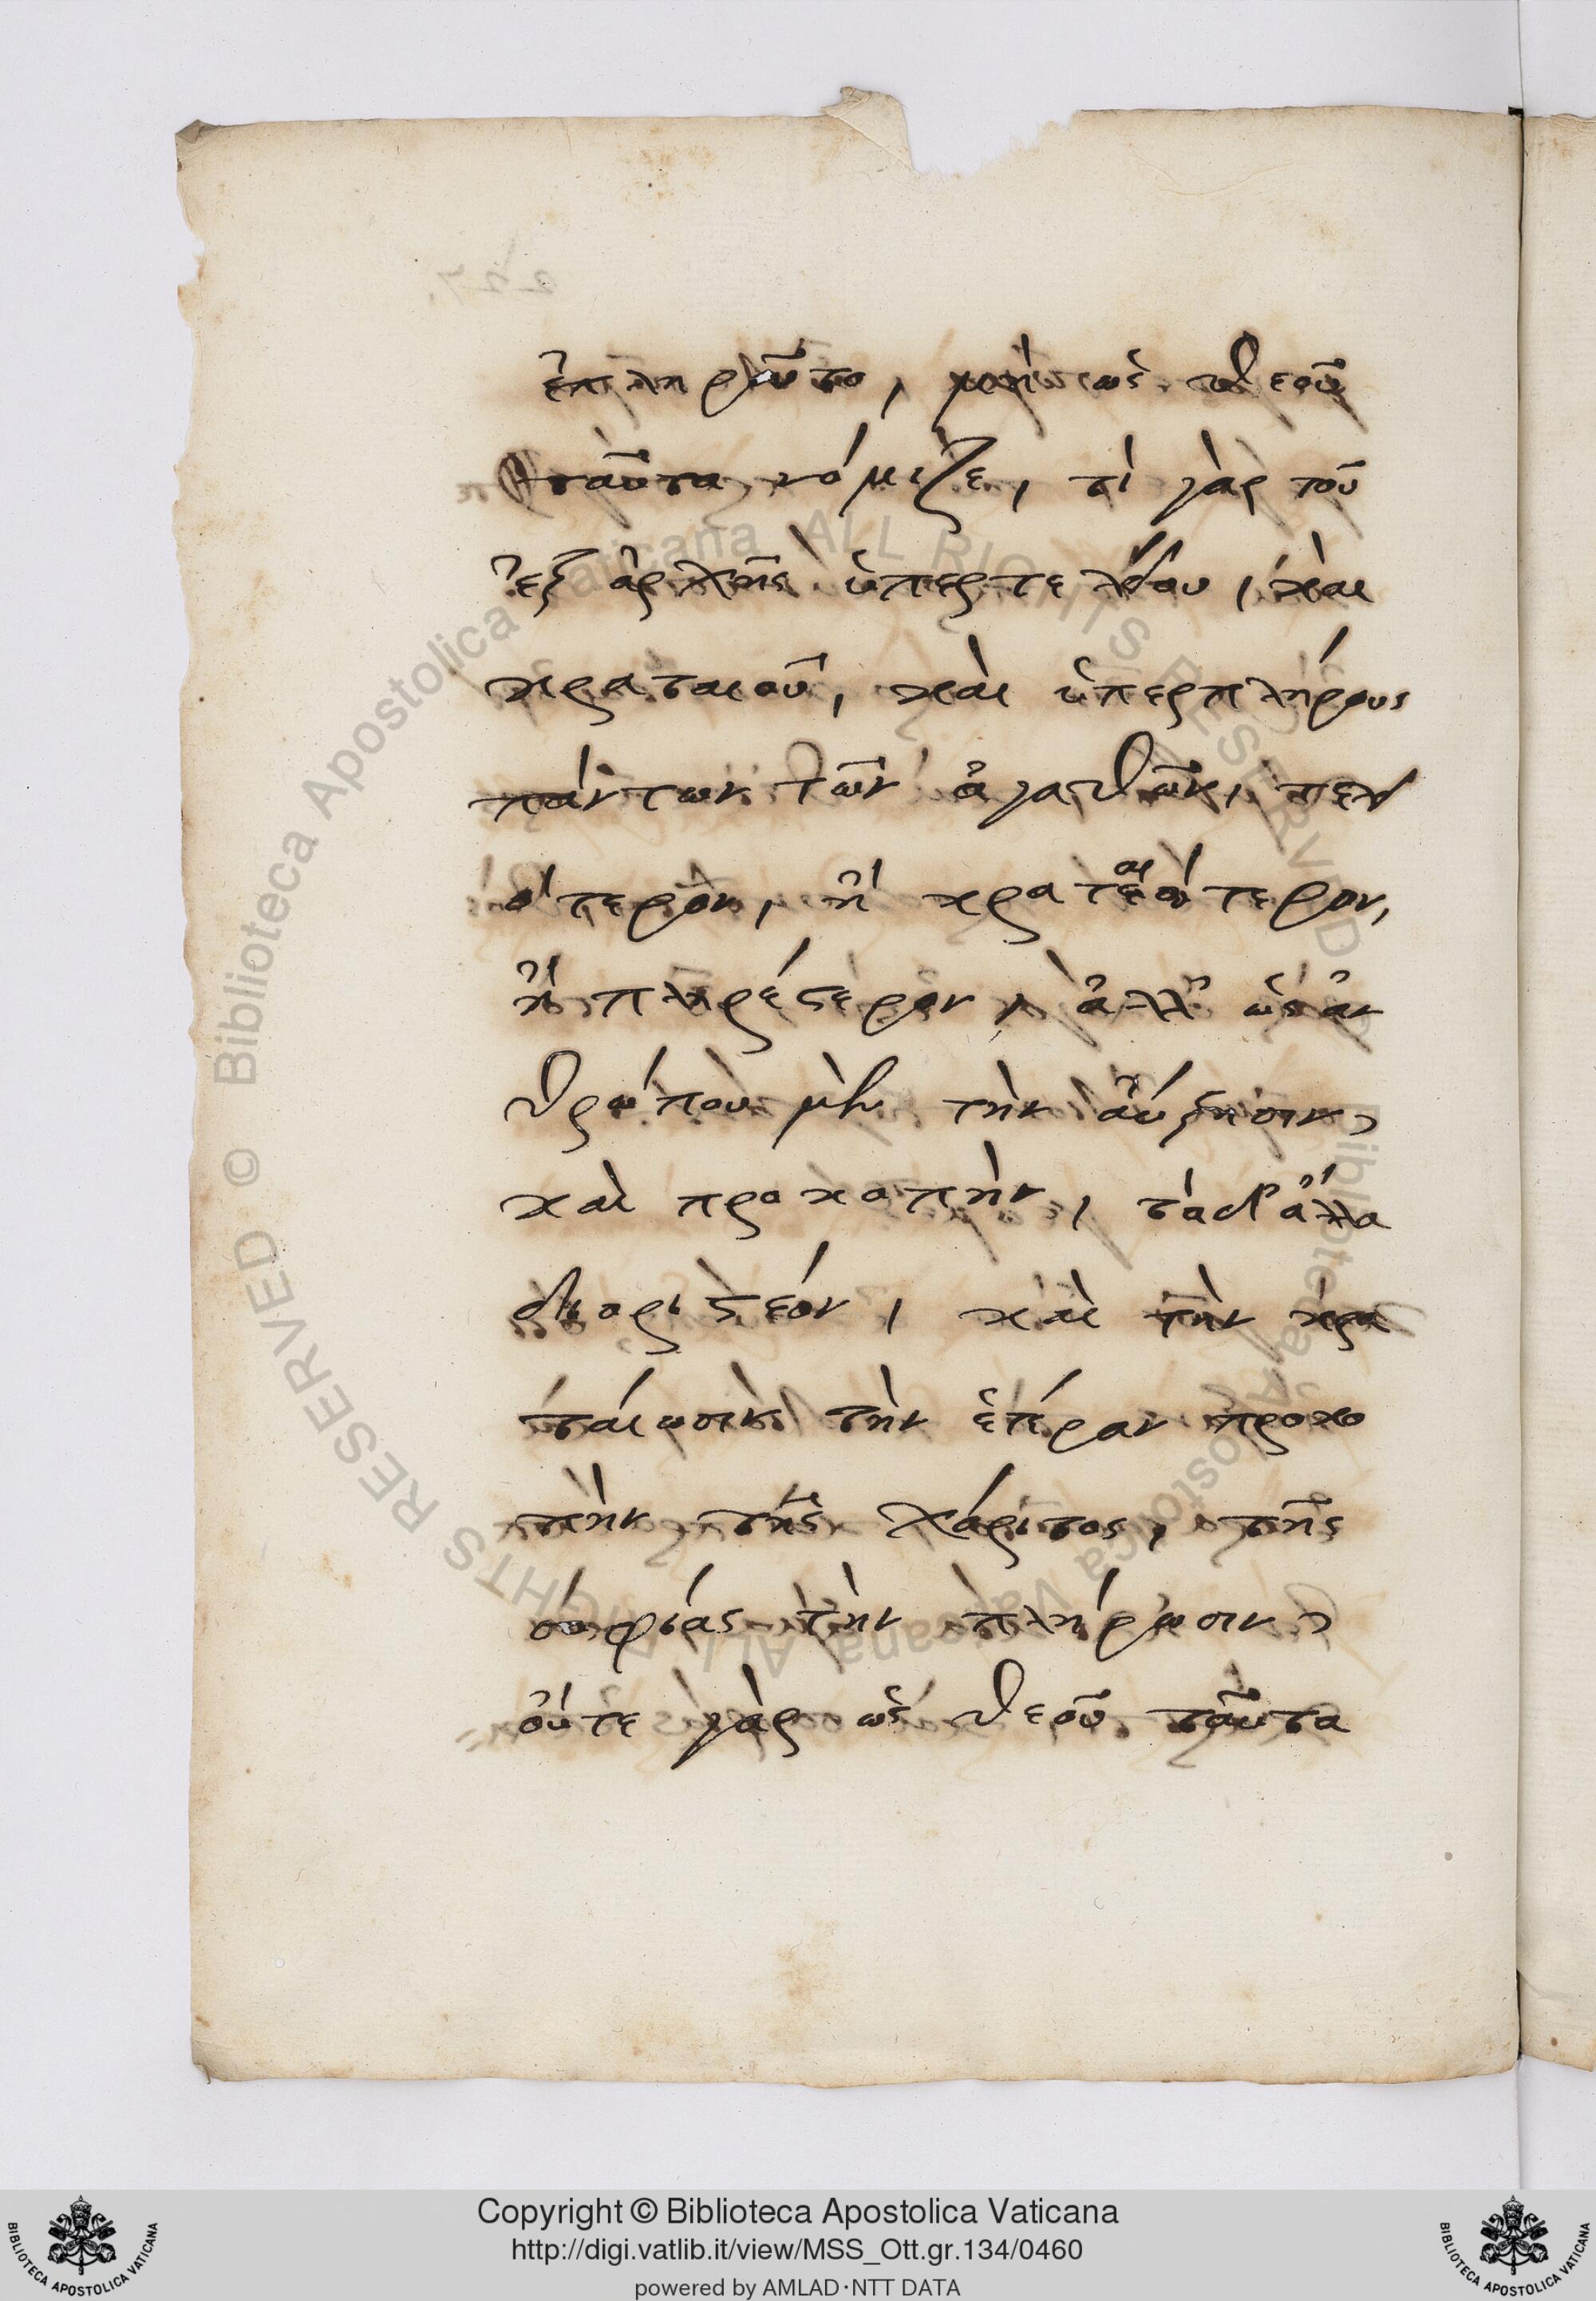 ἐπληροῦτο, μὴ ὡς θεοῦ
ταῦτα νόμιζε, τί γὰρ τοῦ
ἐξ ἀρχῆς ὑπερτελοῦ, καὶ
κραταιοῦ, καὶ ὑπερπλήρους
πάντων τῶν ἀγαθῶν, τελ
τερον, ἢ κραταιότερον,
ἢ πληρέστερον, ἀλλ' ὡς ἀν
θρώπου μὲν τὴν αὔξησιν,
καὶ προκοπὴν, τὰ δ' ἄλλα
διοριστέον, καὶ τὴν κρα
ταίωσιν τὴν ἑτέραν προκο
πὴν, τῆς χάριτος, τῆς
σοφίας τὴν πλήρωσιν,
οὔτε γὰρ ὡς θεοῦ ταῦτα
Copyright © Biblioteca Apostolica Vaticana
http://digi.vatlib.it/view/MSS_Ott.gr.134/0460
powered by AMLAD·NTT DATA
BIBLIOTECA APOSTOLICA VATICANA
BIBLIOTECA APOSTOLICA VATICANA
© Biblioteca Apostolica Vaticana ALL RIGHTS RESERVED